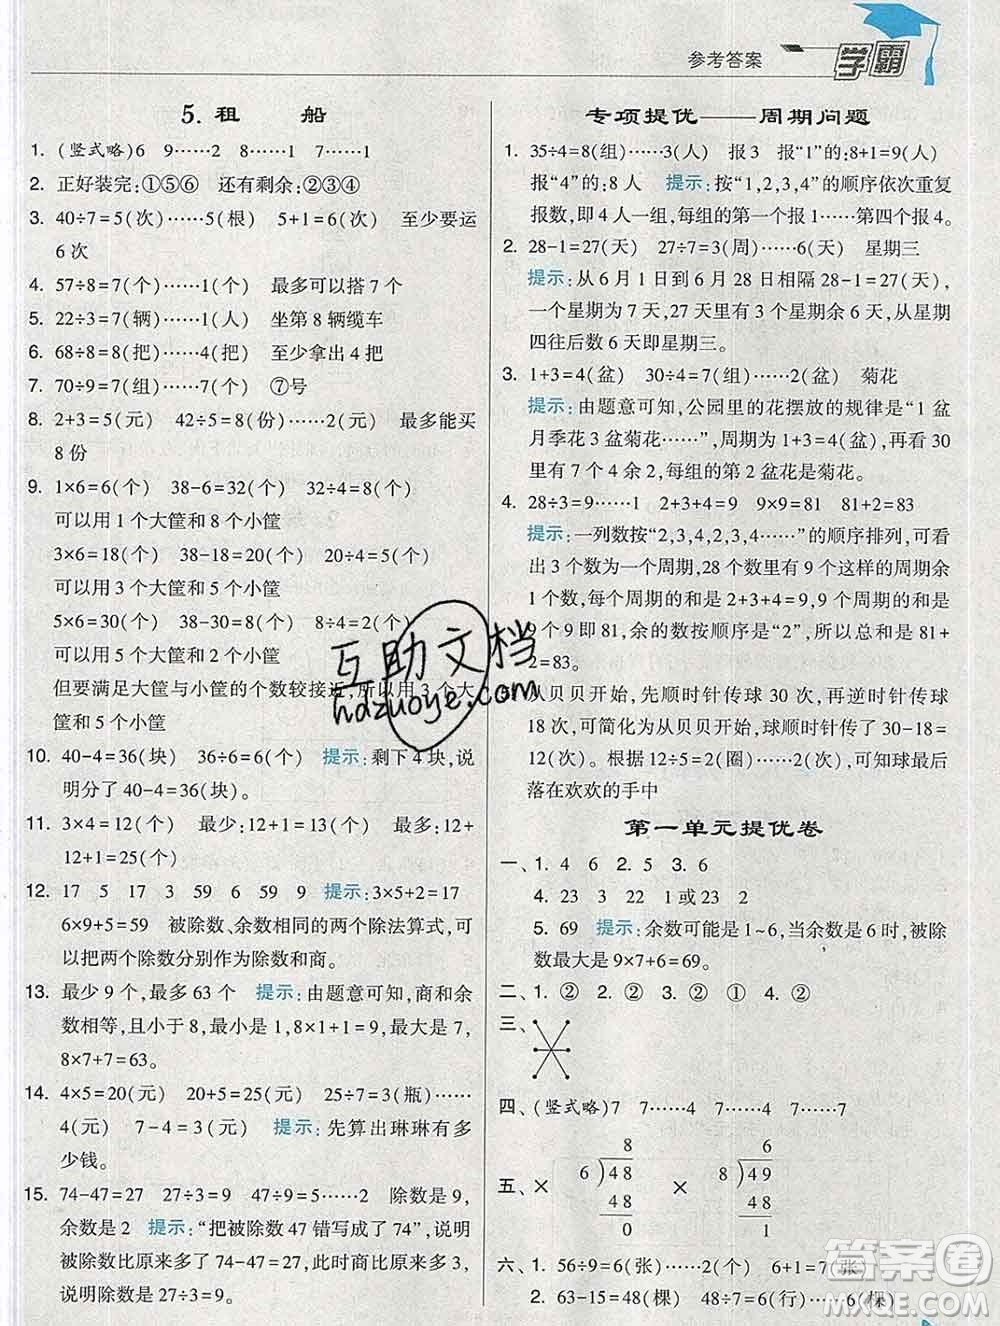 参考答案
学霸
5. 租 船
1. (竖式略)6 9……2 8……1 7……1
2. 正好装完:①⑤⑥ 还有剩余:②③④
3. 40÷7=5(次)……5(根) 5+1=6(次) 至少要运
6 次
4. 57÷8=7(个)……1(根) 最多可以搭 7 个
5. 22÷3=7(辆)……1(人) 坐第 8 辆缆车
6. 68÷8=8(把)……4(把) 至少拿出 4 把
7. 70÷9=7(组)……7(个) ⑦号
8. 2+3=5(元) 42÷5=8(份)……2(元) 最多能买
8 份
9. 1×6=6(个) 38-6=32(个) 32÷4=8(个)
可以用 1 个大筐和 8 个小筐
3×6=18(个) 38-18=20(个) 20÷4=5(个)
可以用 3 个大筐和 5 个小筐
5×6=30(个) 38-30=8(个) 8÷4=2(个)
可以用 5 个大筐和 2 个小筐
但要满足大筐与小筐的个数较接近,所以用 3 个大
筐和 5 个小筐
10. 40-4=36(块) 36÷6=6(个) 提示:剩下 4 块,说
明分了 40-4=36(块)。
11. 3×4=12(个) 最少:12+1=13(个) 最多:12+
12+1=25(个)
12. 17 5 17 3 59 6 59 9 提示:3×5+2=17
6×9+5=59 被除数、余数相同的两个除法算式,可
以把两个除数分别作为除数和商。
13. 最少 9 个,最多 63 个 提示:由题意可知,商和余
数相等,且小于 8,最小是 1,8×1+1=9,最大是 7,
8×7+7=63。
14. 4×5=20(元) 20+5=25(元) 25÷7=3(瓶)……
4(元) 7-4=3(元) 提示:先算出琳琳有多
少钱。
15. 74-47=27 27÷3=9 47÷9=5……2 除数是 9,
余数是 2 提示:“把被除数 47 错写成了 74”,说明
被除数比原来多了 74-47=27,此时商比原来多 3,
说明除数是 27÷3=9。
专项提优——周期问题
1. 35÷4=8(组)……3(人) 报 3 报“1”的:8+1=9(人)
报“4”的:8 人 提示:按“1,2,3,4”的顺序依次重复
报数,即 4 人一组,每组的第一个报 1……第四个报 4。
2. 28-1=27(天) 27÷7=3(周)……6(天) 星期三
提示:从 6 月 1 日到 6 月 28 日相隔 28-1=27(天),
一个星期为 7 天,27 天为 3 个星期余 6 天,从星期
四往后数 6 天即星期三。
3. 1+3=4(盆) 30÷4=7(组)……2(盆) 菊花
提示:由题意可知,公园里的花摆放的规律是“1 盆
月季花 3 盆菊花……”,周期为 1+3=4,再看 30
里有 7 个 4 余 2,每组的第 2 盆花是菊花。
4. 28÷3=9……1 2+3+4=9 9×9=81 81+2=83
提示:一列数按“2,3,4,2,3,4……”的顺序排列,可看
出 3 个数为一个周期,28 个数里有 9 个这样的周期余
1 个数,每个周期的和是 2+3+4=9,9 个周期的和
是 9 个 9 即 81,余的数按顺序是“2”,所以总和是 81+
2=83。
从贝贝开始,先顺时针传球 30 次,再逆时针传球
18 次,可简化为从贝贝开始,球顺时针传了 30-18=
12(次)。根据 12÷5=2(圈)……2(次),可知球最后
落在欢欢的手中
第一单元提优卷
一、1. 4 6 2. 5 3. 6
4. 23 23 22 1 或 23 2
5. 69 提示:余数可能是 1~6,当余数是 6 时,被除
数最大是 9×7+6=69。
二、1. ② 2. ② 3. ② ① 4. ②
三、
四、(竖式略)7 7……4 7……4 7……7
五、× 8 6)48 48 0 × 6 8)49 48 1
六、1. 56÷9=6(张)……2(个) 6+1=7(张)
2. 63-15=48(棵) 48÷7=6(行)……6(棵)
互助文档
hdzuoye.com
答案圈
MXQE.COM